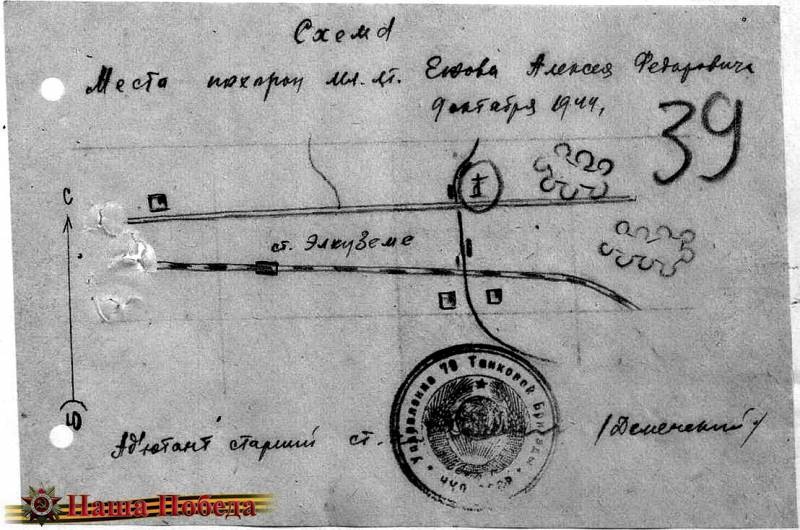 Схема
Места похорон мл. лт. Ежова Алексея Федоровича
9 октября 1944,
39
С
ст. Элкуземе
Ю
Управление 79 Танковой Бригады
НКО СССР
Адъютант старший ст. /Деменский/
Наша Победа